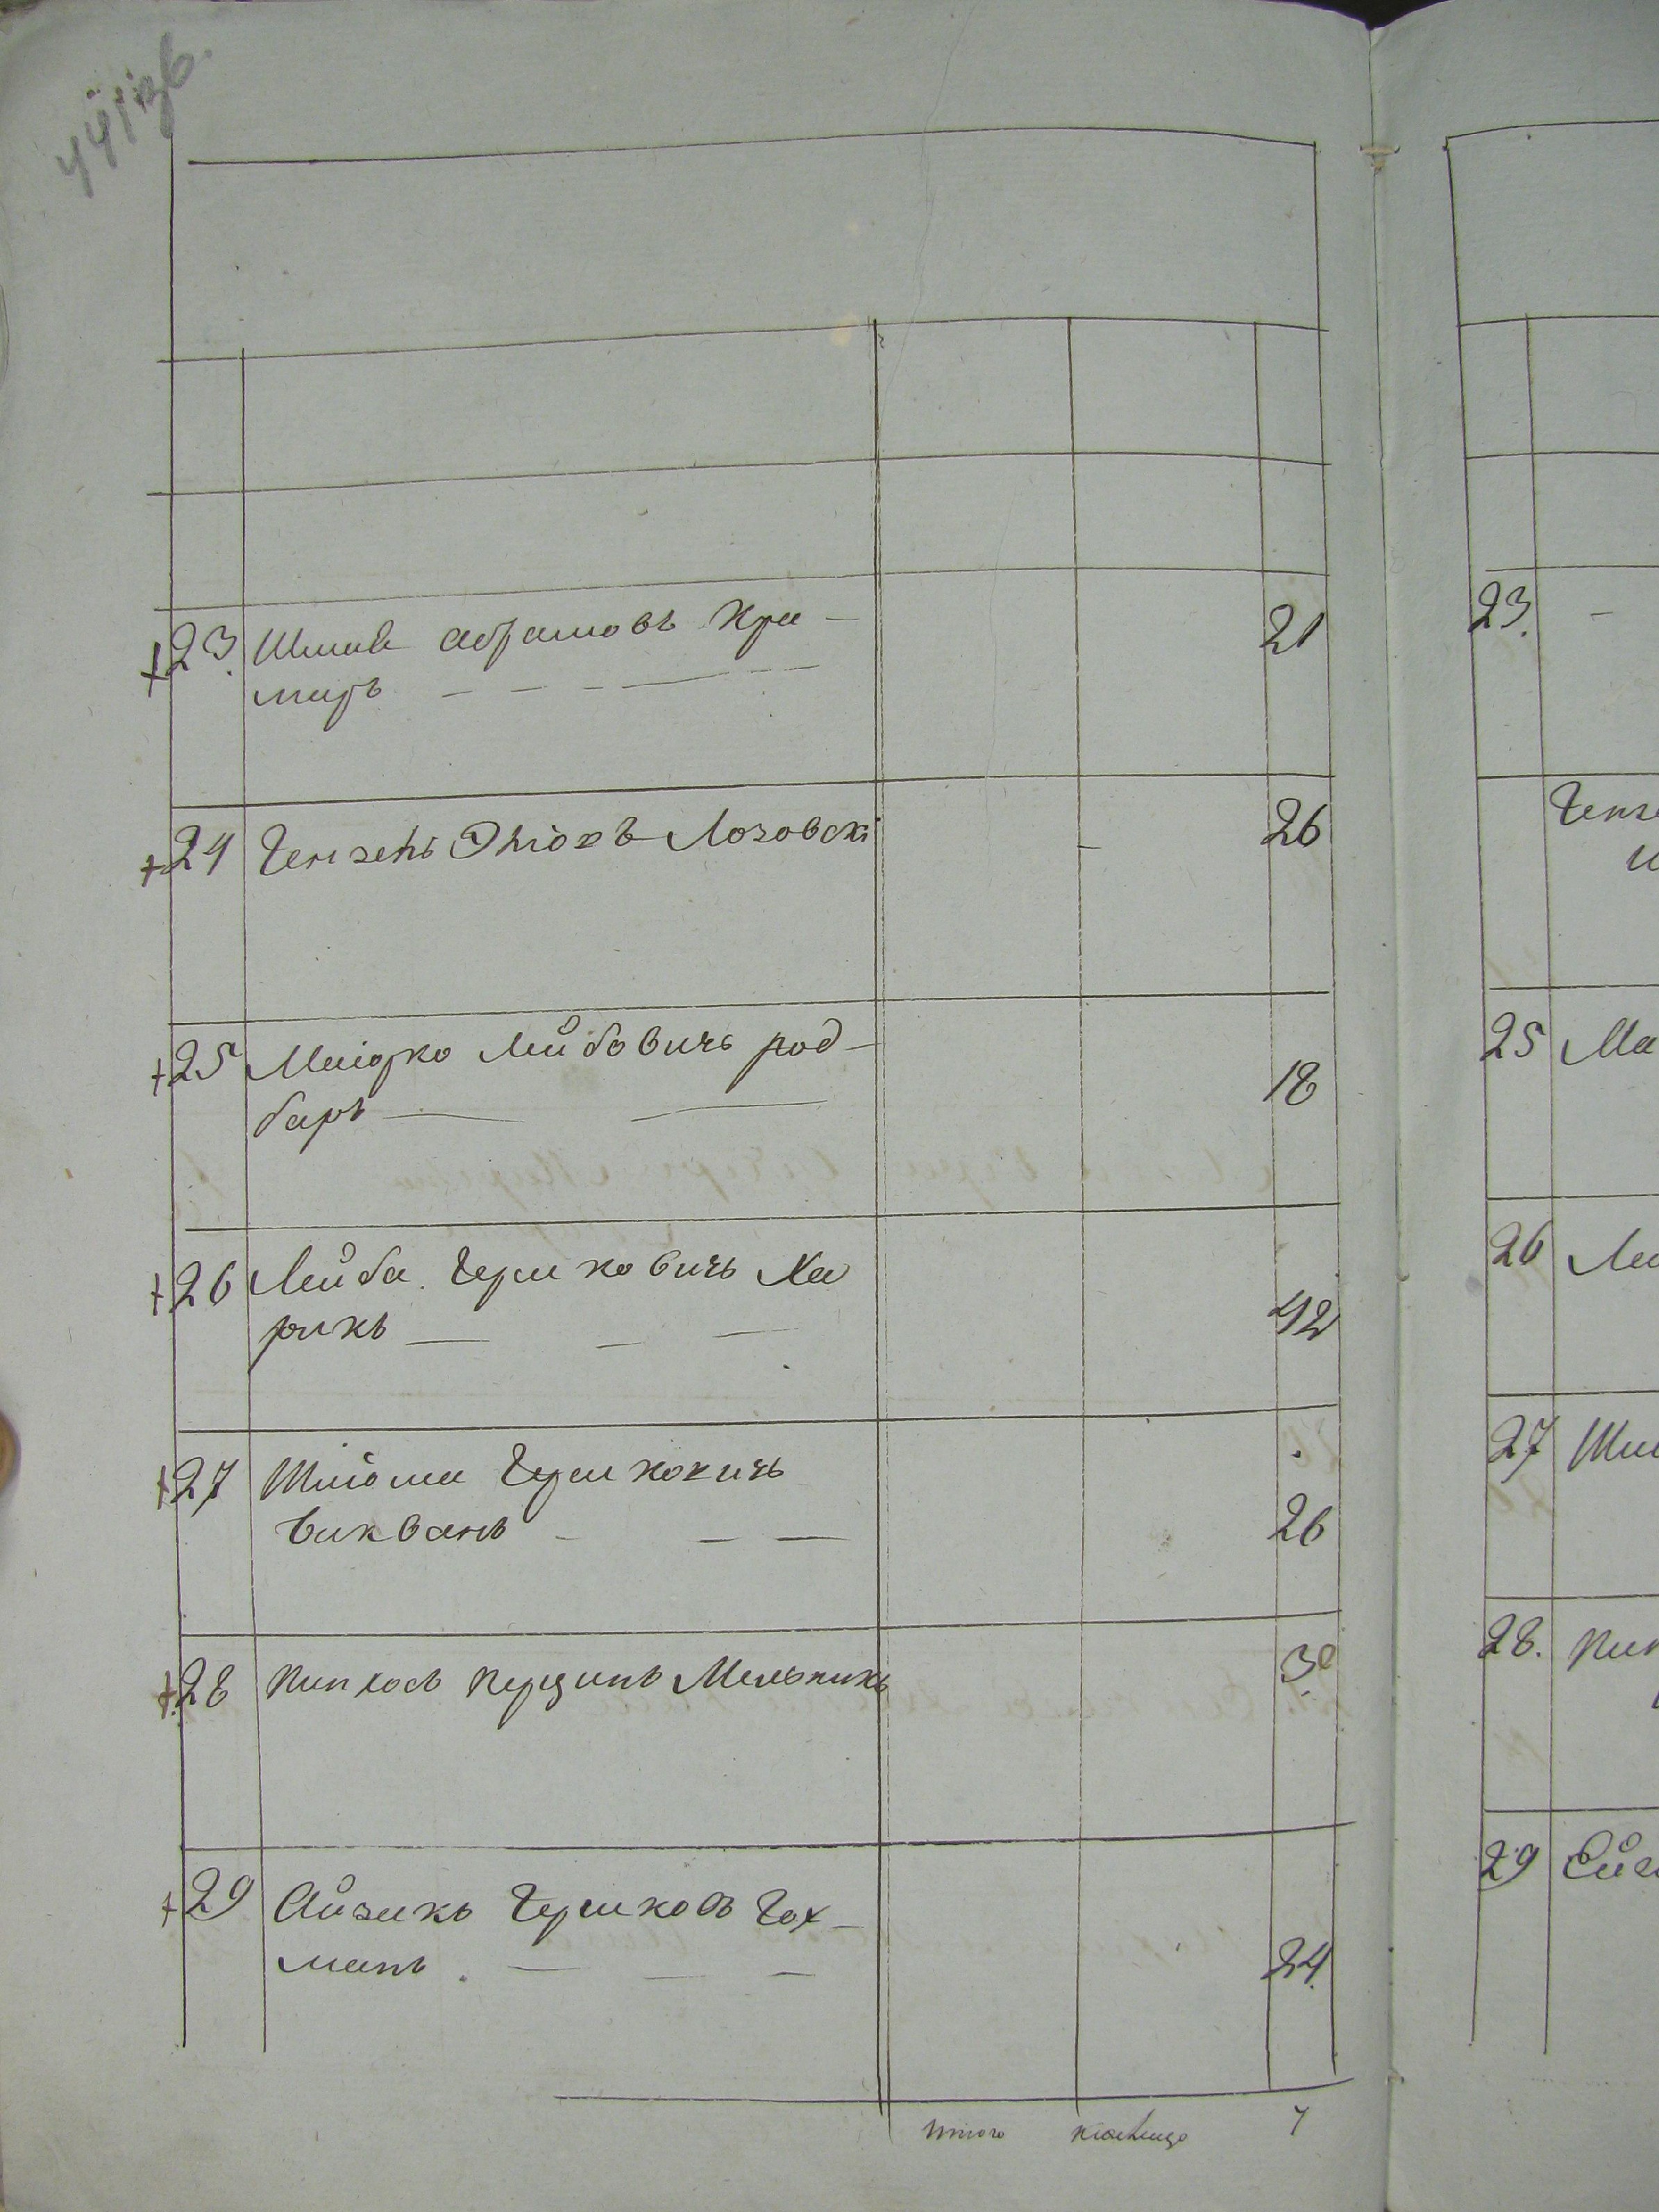 441об.
23. Шмиль Абрамовъ Кри-
миръ
21
24 Гензель Эліовъ Лозовскі
26
25 Маіорко Лейбовичъ род-
баръ
18
26 Лейба Гершковичъ Ха
рикъ
42
27 Шліома Гершковичъ
Бикванъ
26
28 Пинхосъ Перцинъ Мельникъ
30
29 Айзикъ Гершковъ Гох-
манъ
24
Итого наличнго 7
23.
Гензе
25 Ма
26 Ле
27 Шл
28. Пин
29